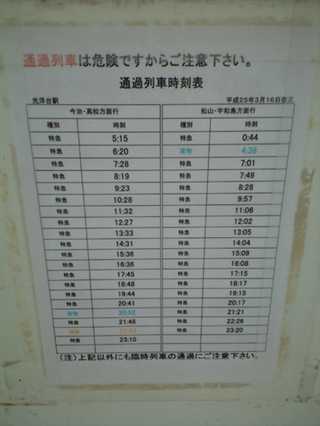 通過列車は危険ですからご注意下さい。
通過列車時刻表
光洋台駅 平成25年3月16日改正
今治・高松方面行 松山・宇和島方面行
種別 時刻 種別 時刻
特急 5:15 特急 0:44
特急 6:20 貨物 4:38
特急 7:28 特急 7:01
特急 8:19 特急 7:48
特急 9:23 特急 8:28
特急 10:28 特急 9:57
特急 11:32 特急 11:06
特急 12:27 特急 12:02
特急 13:33 特急 13:05
特急 14:31 特急 14:04
特急 15:36 特急 15:09
特急 16:36 特急 16:08
特急 17:45 特急 17:15
特急 18:48 特急 18:17
特急 19:44 特急 19:13
特急 20:41 特急 20:17
貨物 特急 21:21
特急 21:46 特急 22:26
特急 23:20
特急 23:10
(注)上記以外にも臨時列車の通過にご注意下さい。